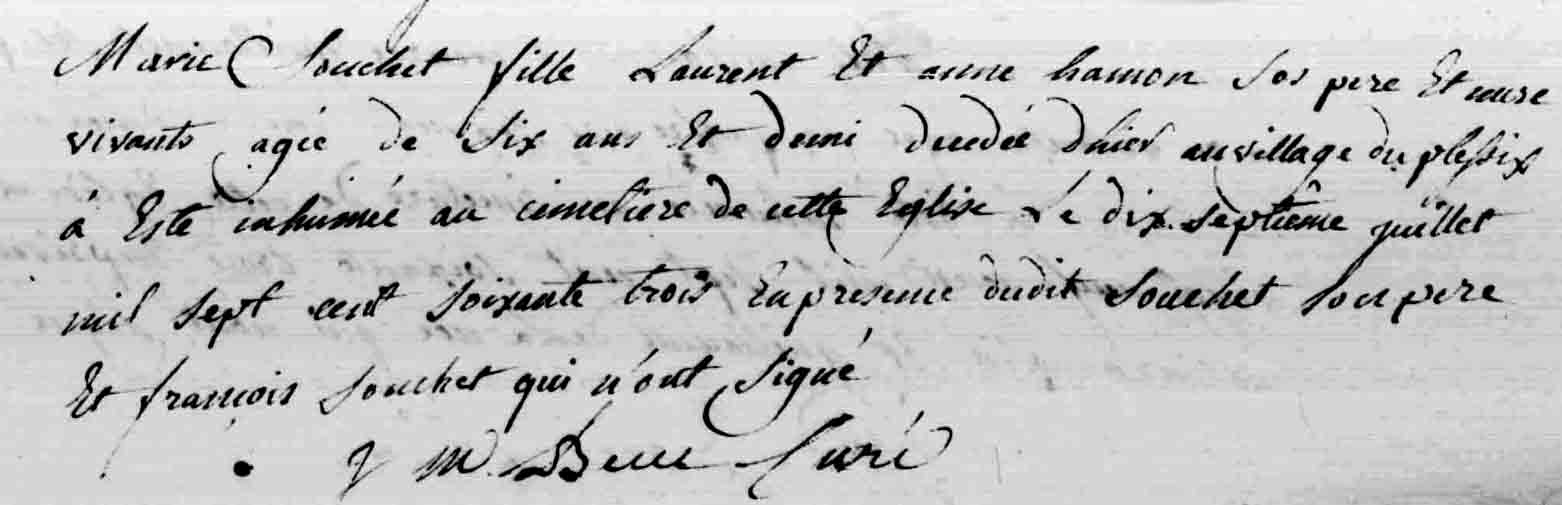 Marie Souchet fille Laurent Et anne hamon Ses pere Et mere
vivants agée de Six ans Et demi decedée d'hier au village du plessix
à Esté inhumée au cimetiere de cette Eglise Le dix septiême juillet
mil sept cent soixante trois En presence dudit Souchet son pere
Et francois Souchet qui n'ont Signé
J M Curé